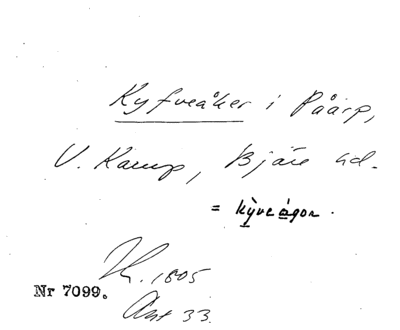 Kyfveåker i Påarp,
V. Karup, Bjäre hd.
= kyveågon.
1805
Nr 7099.
Akt 33.